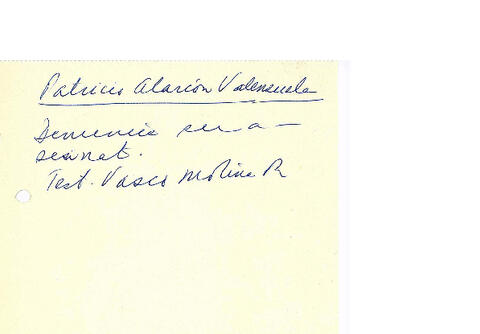 Patricio Alarcón Valenzuela
Denuncia ser a—
sesinat.
Test. Vasco Molina R